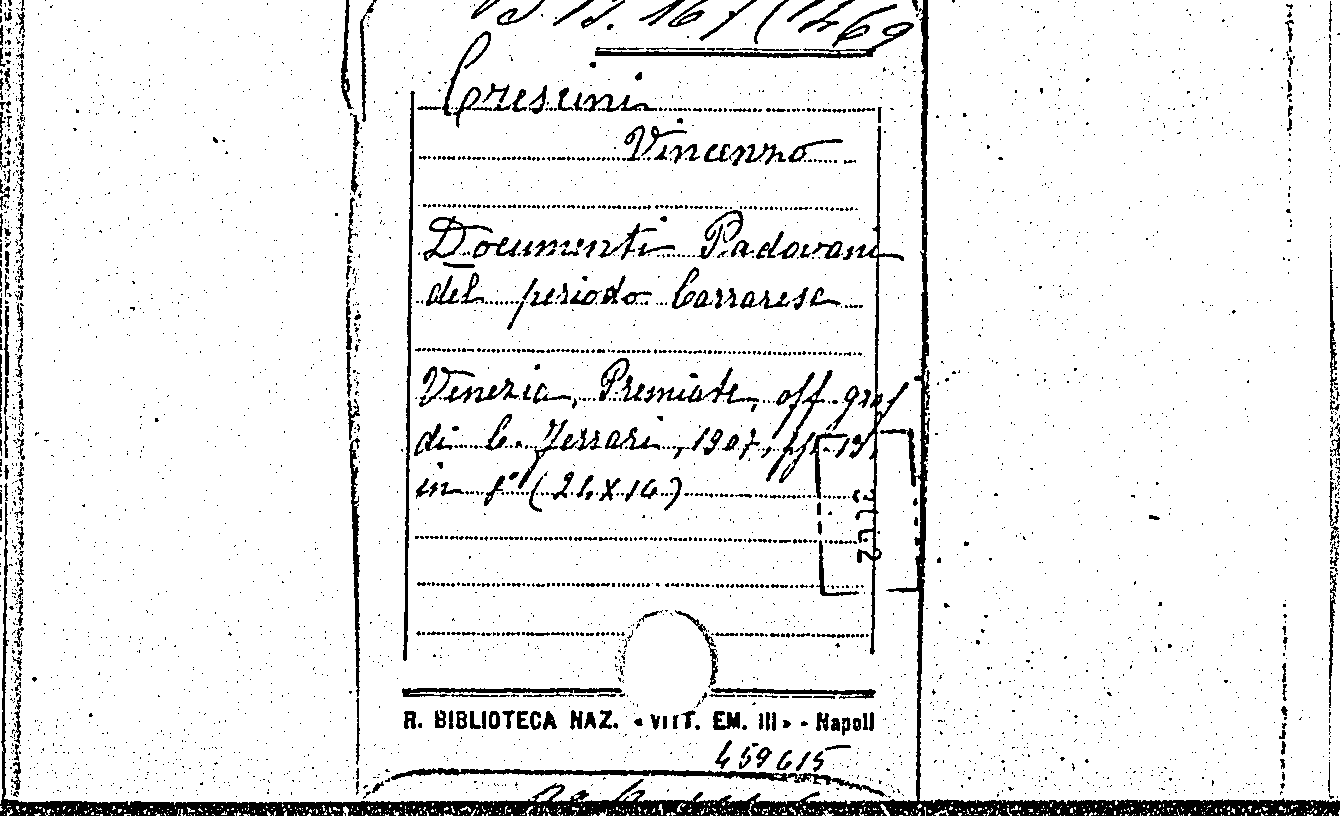 B. 13. 167 (1469
Crescini
Vincenzo
Documenti Padovani
del periodo Carrarese
Venezia, Premiate, off. graf
di C. Ferrari, 1907, pp. 15,
in 8° (24 X 16)
R. BIBLIOTECA NAZ. «VITT. EM. III» - Napoli
459615